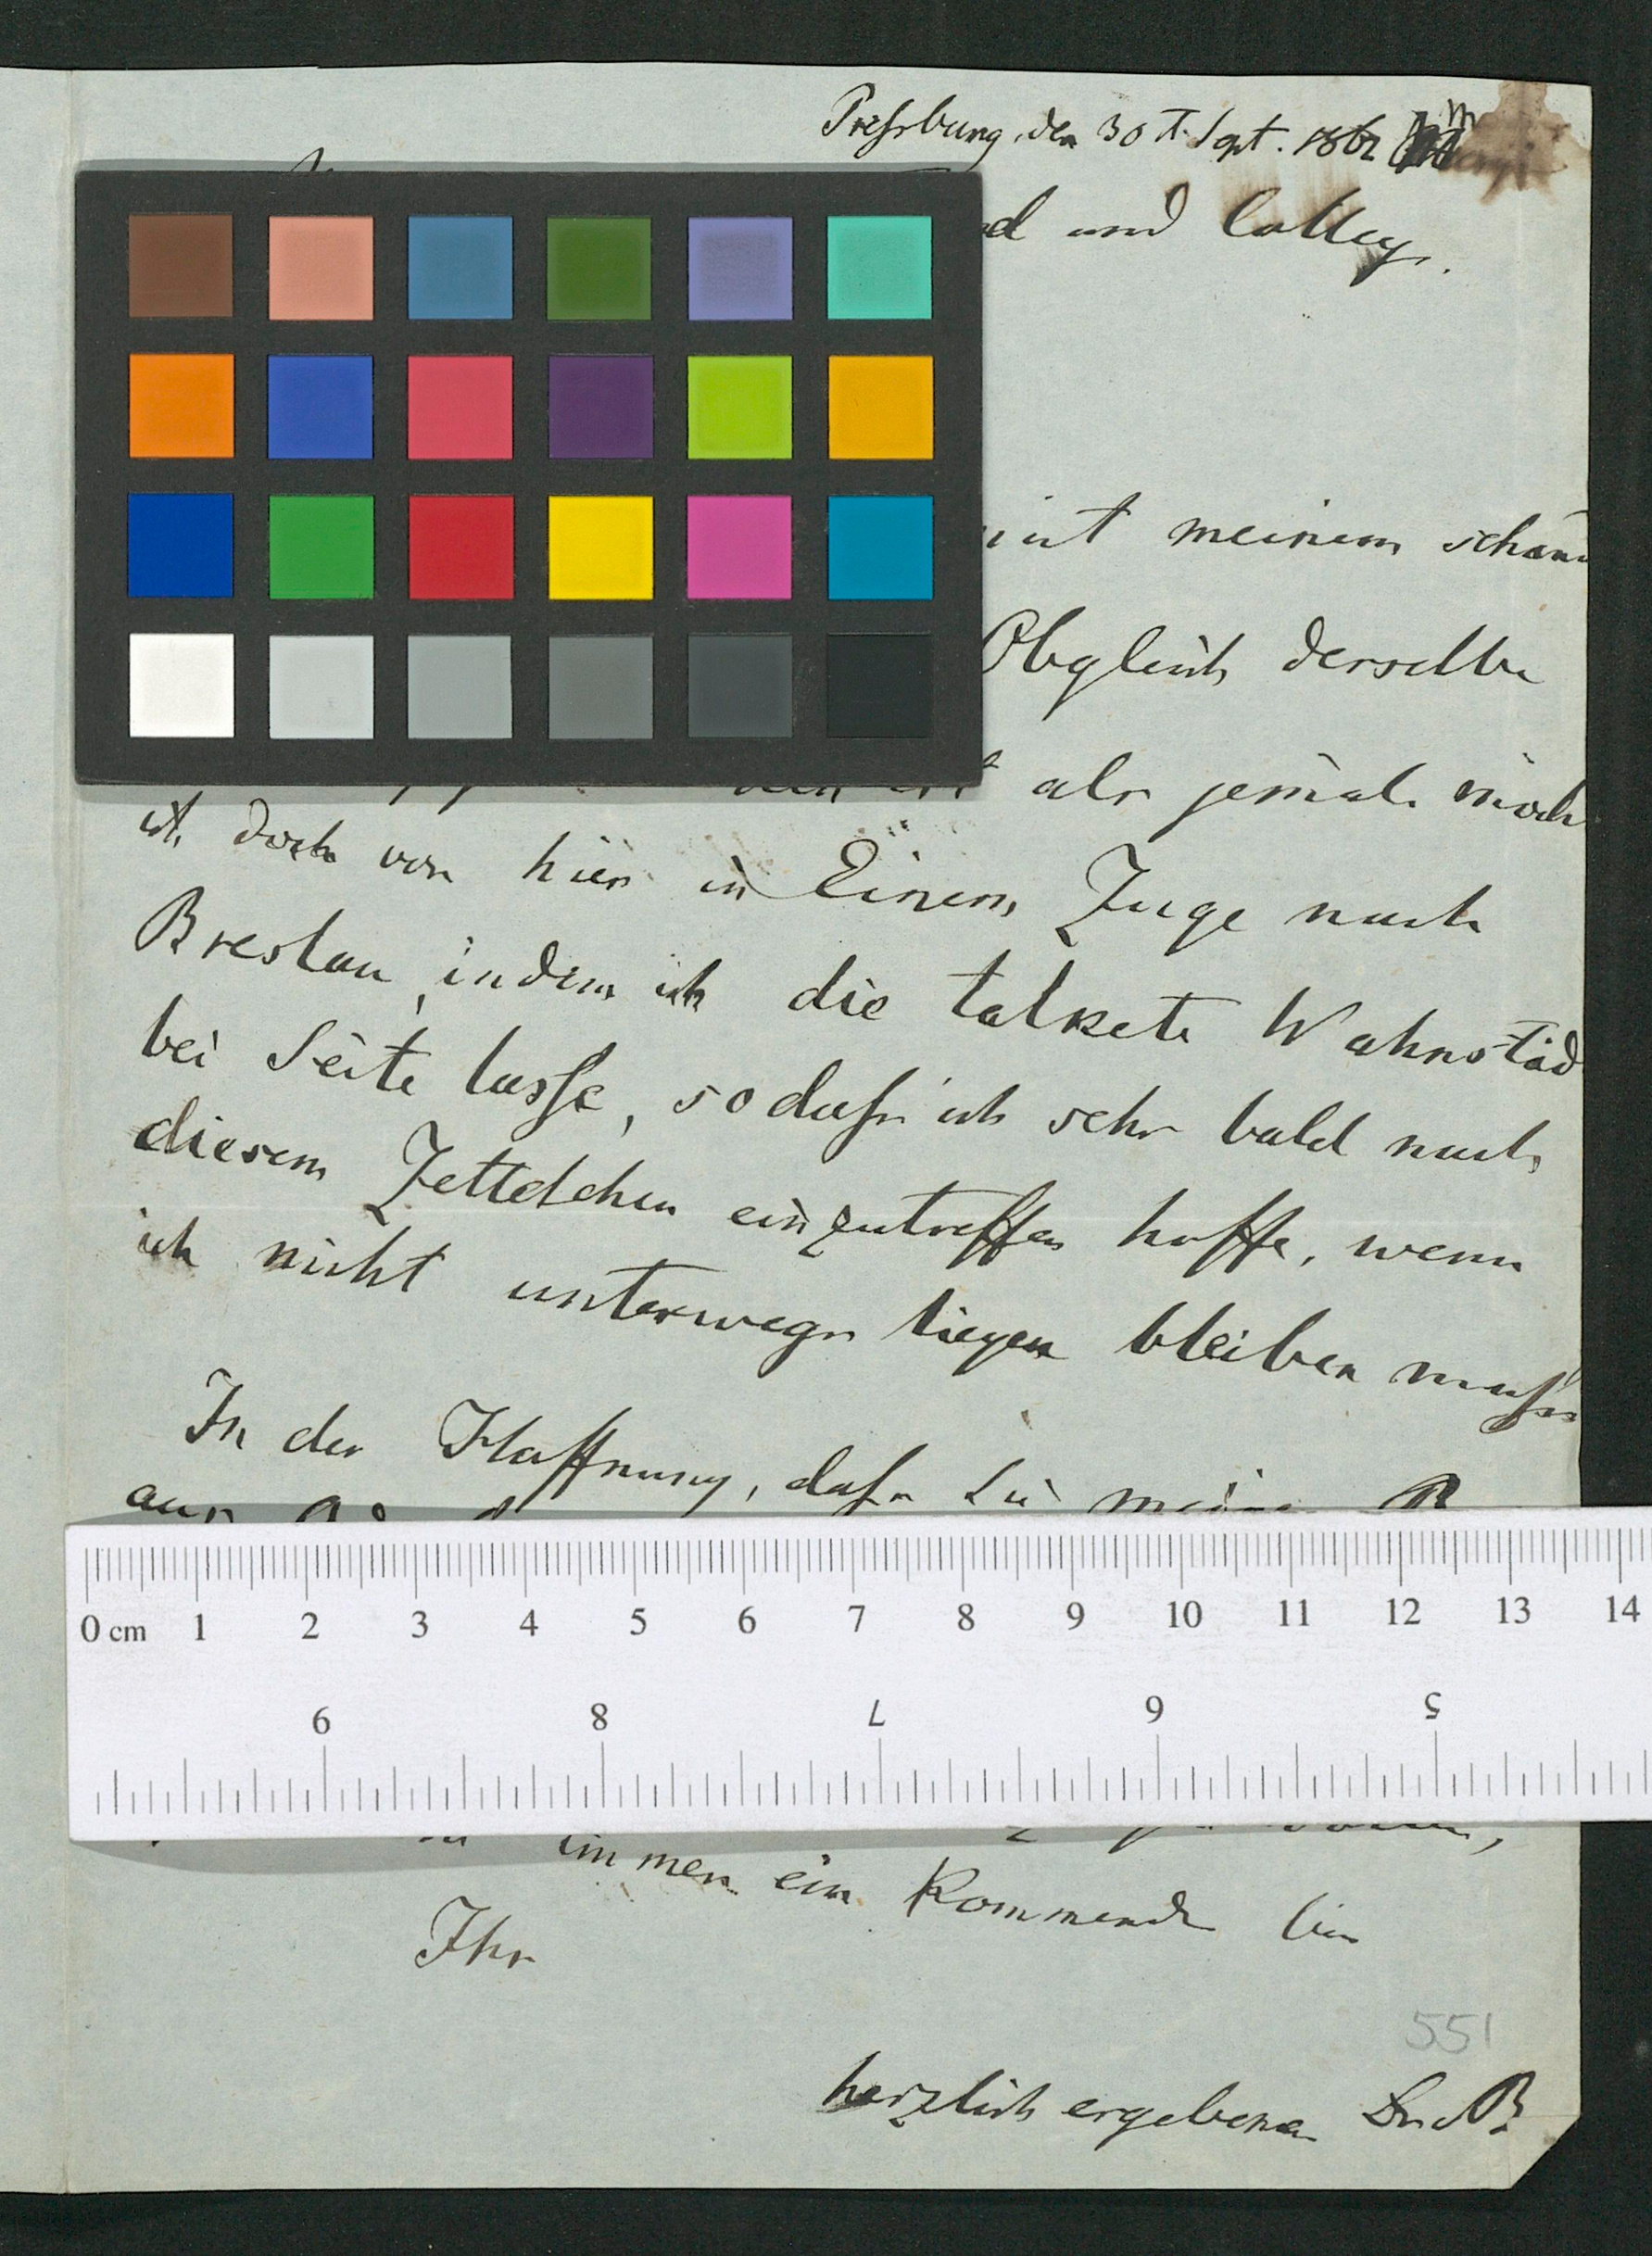 Pressburg, den 30 t. Sept. 1862
und Colleg.
mit meinem
Obgleich derselbe
als jemals
ich doch von hier in Einem Zuge nach
Breslau, indem ich die talkete
bei Seite lasse, so dass ich sehr bald nach
diesem Zettelchen einzutreffen hoffe, wenn
ich nicht unterwegs liegen bleiben muss
In der Hoffnung, dass Sie meine
aus
0 cm 1 2 3 4 5 6 7 8 9 10 11 12 13 14
9 8 7 6 5
immer ein Kommende bin
Ihr
551
herzlich ergebener Dr. B